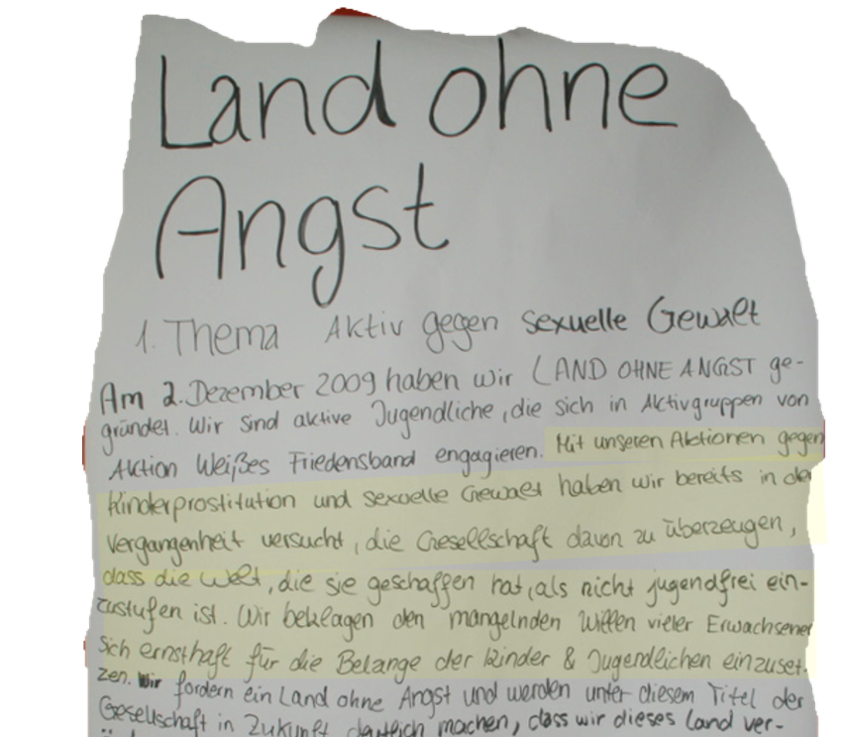 Land ohne
Angst
1. Thema Aktiv gegen sexuelle Gewalt
Am 2. Dezember 2009 haben wir LAND OHNE ANGST ge-
gründet. Wir sind aktive Jugendliche, die sich in Aktivgruppen von
Aktion Weißes Friedensband engagieren. Mit unseren Aktionen gegen
Kinderprostitution und sexuelle Gewalt haben wir bereits in der
Vergangenheit versucht, die Gesellschaft davon zu überzeugen,
dass die Welt, die sie geschaffen hat, als nicht jugendfrei ein-
zustufen ist. Wir beklagen den mangelnden Willen vieler Erwachsener
sich ernsthaft für die Belange der Kinder & Jugendlichen einzuset-
zen. Wir fordern ein Land ohne Angst und werden unter diesem Titel der
Gesellschaft in Zukunft deutlich machen, dass wir dieses Land ver-